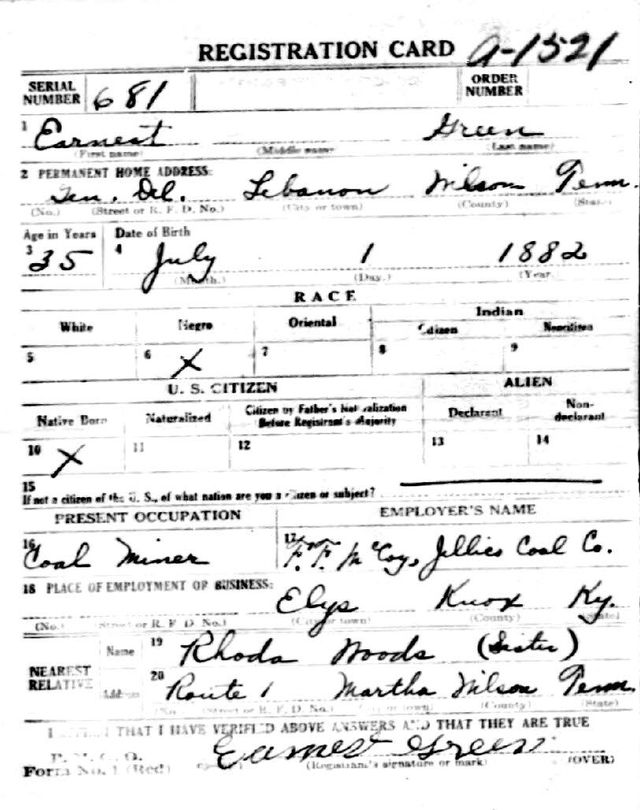 REGISTRATION CARD A-1521
SERIAL NUMBER 681 ORDER NUMBER
1 Earnest Green
(First name) (Middle name) (Last name)
2 PERMANENT HOME ADDRESS:
Gen. Del. Lebanon Wilson Tenn.
(No.) (Street or R. F. D. No.) (City or town) (County) (State)
Age in Years Date of Birth
3 35 4 July 1 1882
(Month.) (Day.) (Year.
RACE
White Negro Oriental Indian
Citizen Noncitizen
5 6 X 7 8 9
U. S. CITIZEN ALIEN
Native Born Naturalized Citizen by Father's Naturalization Before Registrant's Majority Declarant Non-declarant
10 X 11 12 13 14
15
If not a citizen of the U. S., of what nation are you a citizen or subject?
PRESENT OCCUPATION EMPLOYER'S NAME
16 Coal Miner 17 F. F. McCoy, Jellico Coal Co.
18 PLACE OF EMPLOYMENT OR BUSINESS:
Elys Knox Ky.
(No.) (Street or R. F. D. No.) (City or town) (County) (State)
NEAREST RELATIVE Name 19 Rhoda Woods (Sister)
Address 20 Route 1 Martha Wilson Tenn.
(No. (Street or R. F. D. No.) (City or town) (County) (State)
I AFFIRM THAT I HAVE VERIFIED ABOVE ANSWERS AND THAT THEY ARE TRUE
P. M. G. O.
Form No. 1 (Red) Earnest Green
(Registrant's signature or mark) (OVER)